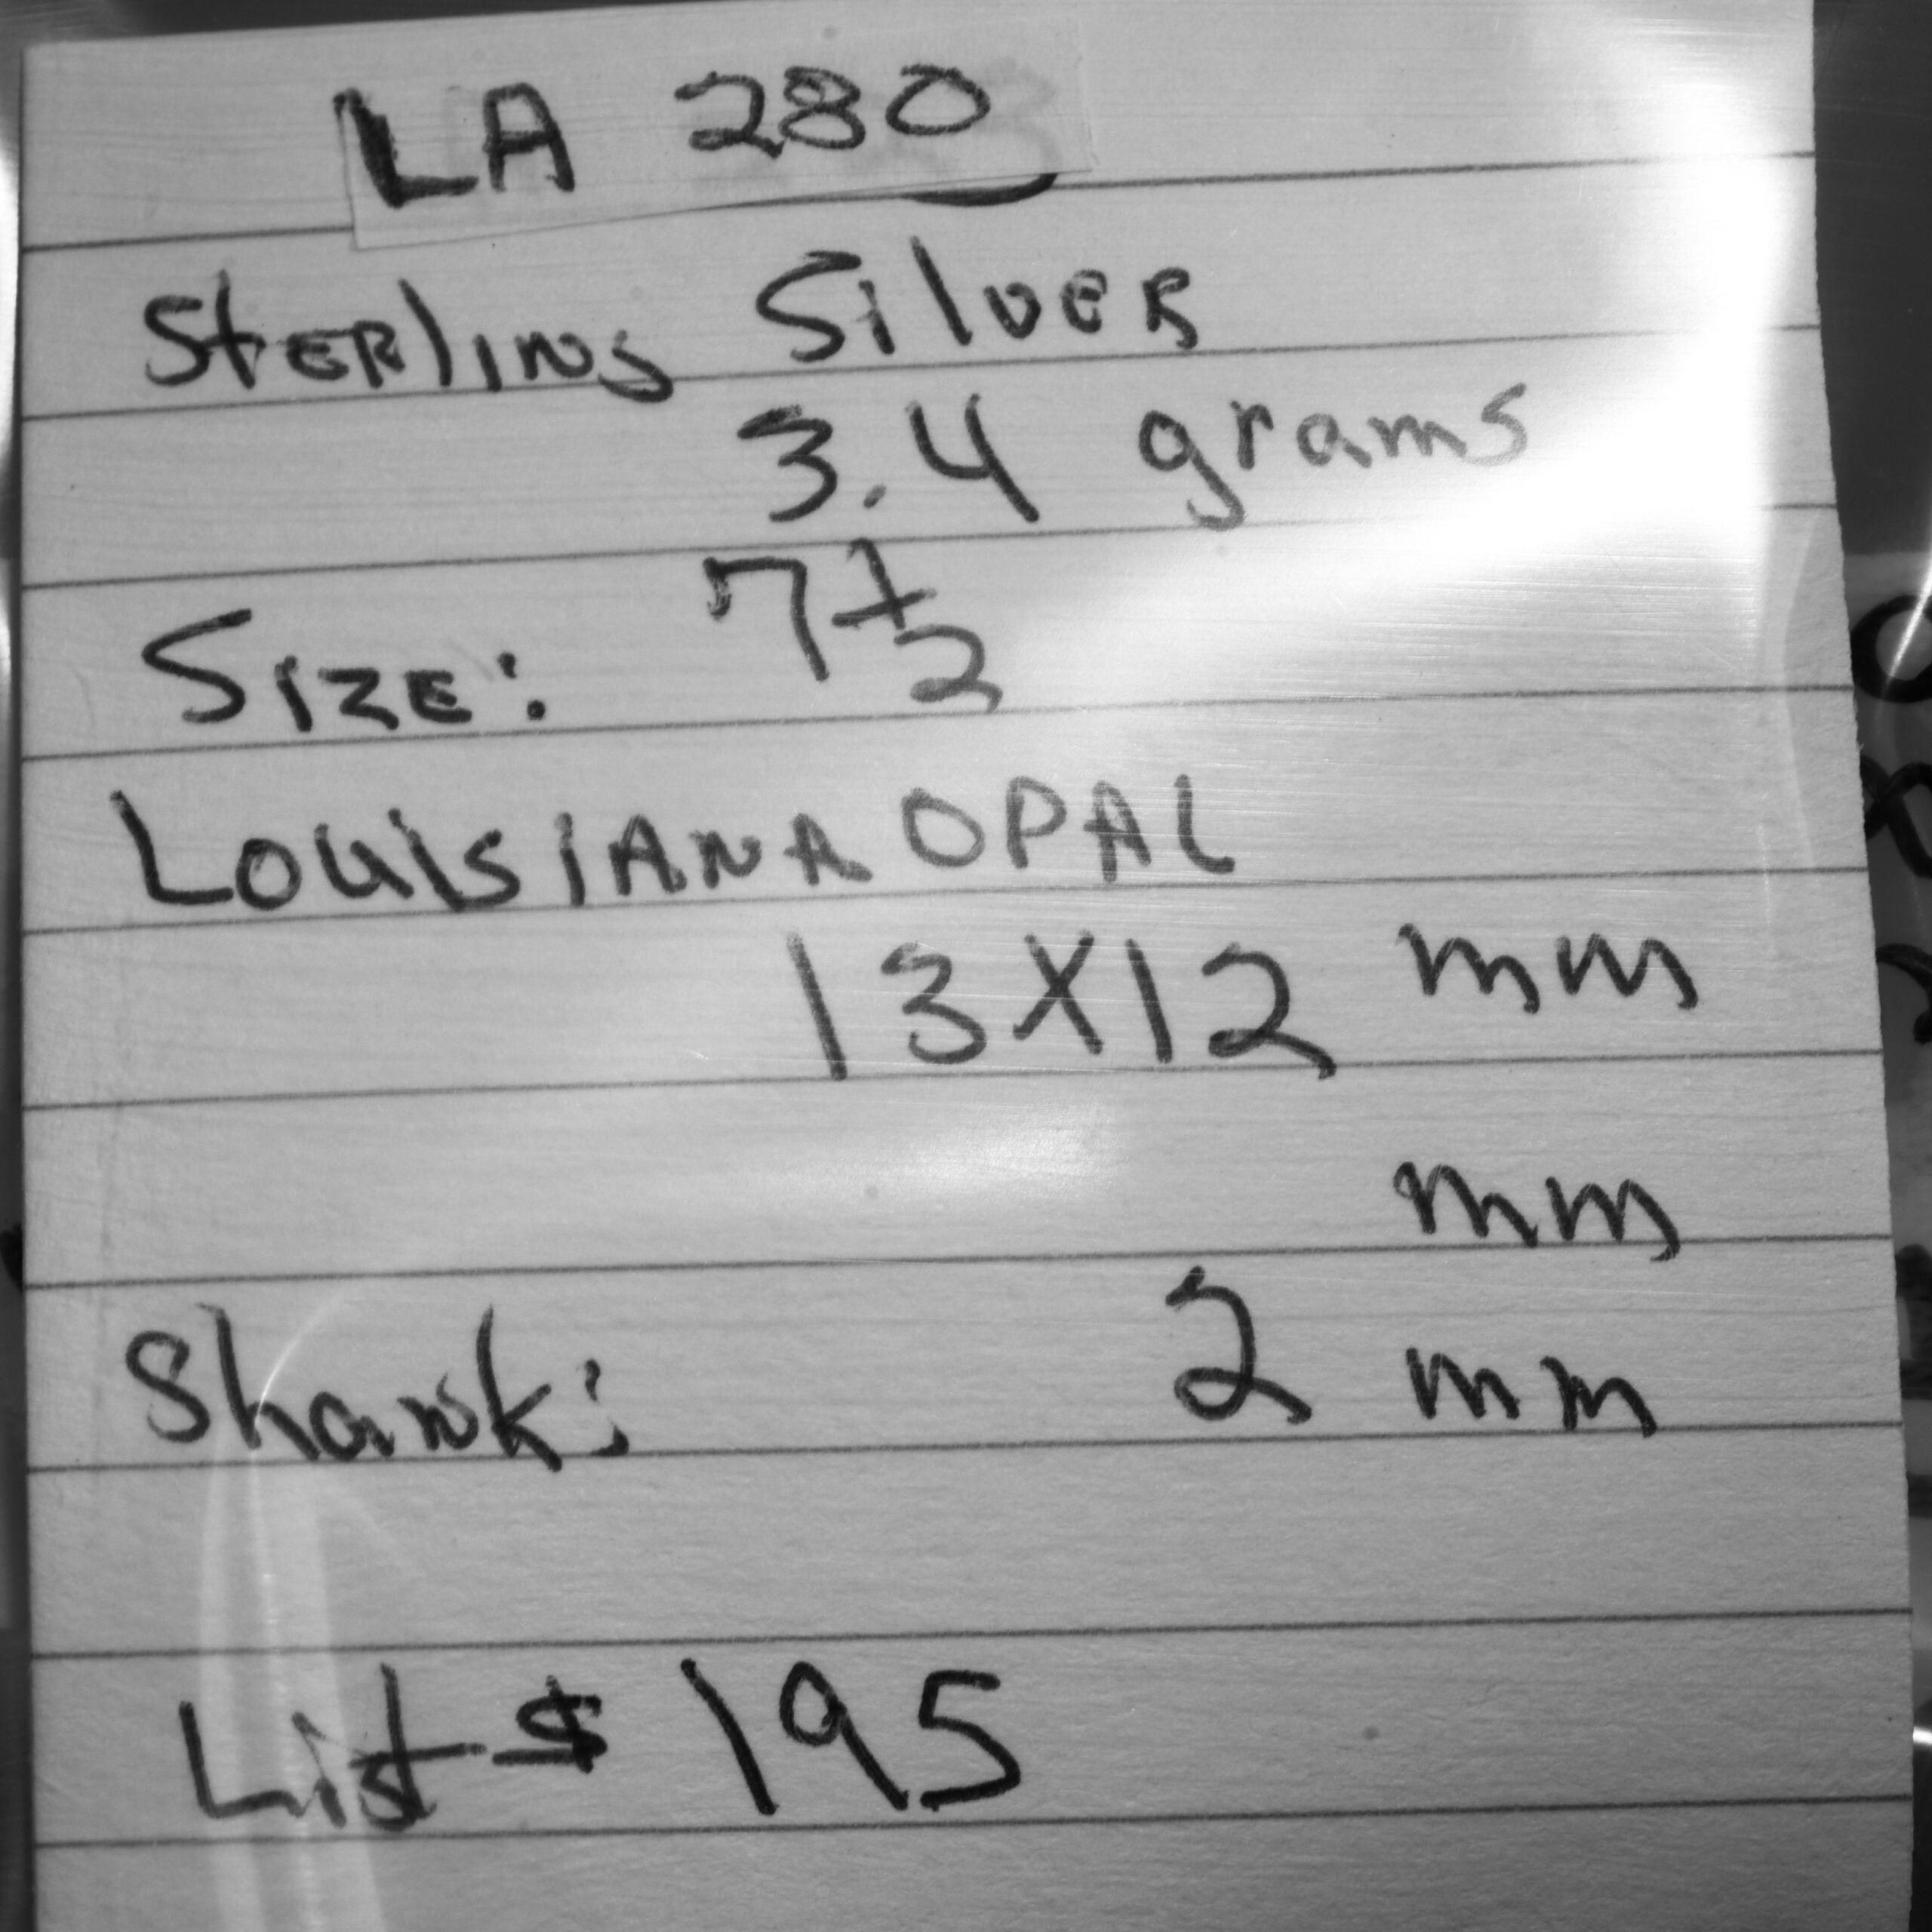 LA 280
Sterling Silver
3.4 grams
Size: 7 1/2
Louisiana Opal
13X12 mm
mm
Shank: 2 mm
List $ 195